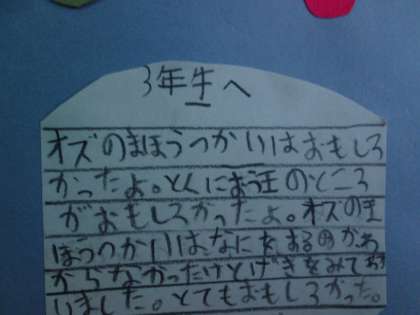 3年生へ
オズのまほうつかいはおもしろ
かったよ。とくにまほう王のところ
がおもしろかったよ。オズのま
ほうつかいはなにをするのかわ
からなかったけどげきをみて
いました。とてもおもしろかった。